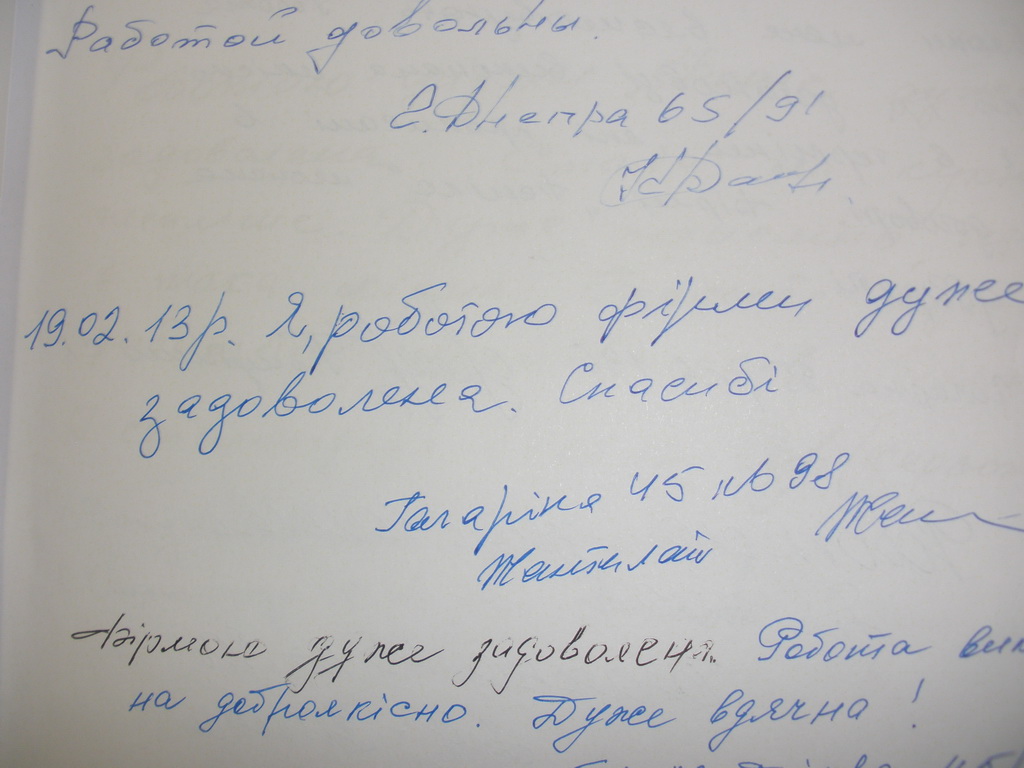 Работой довольны.
г. Днепра 65/91
19.02.13р. Я, роботою фірми дуже
задоволена. Спасибі
Гагаріна 45 кв 98
Фірмою дуже задоволена. Робота вик
на доброякісно. Дуже вдячна!